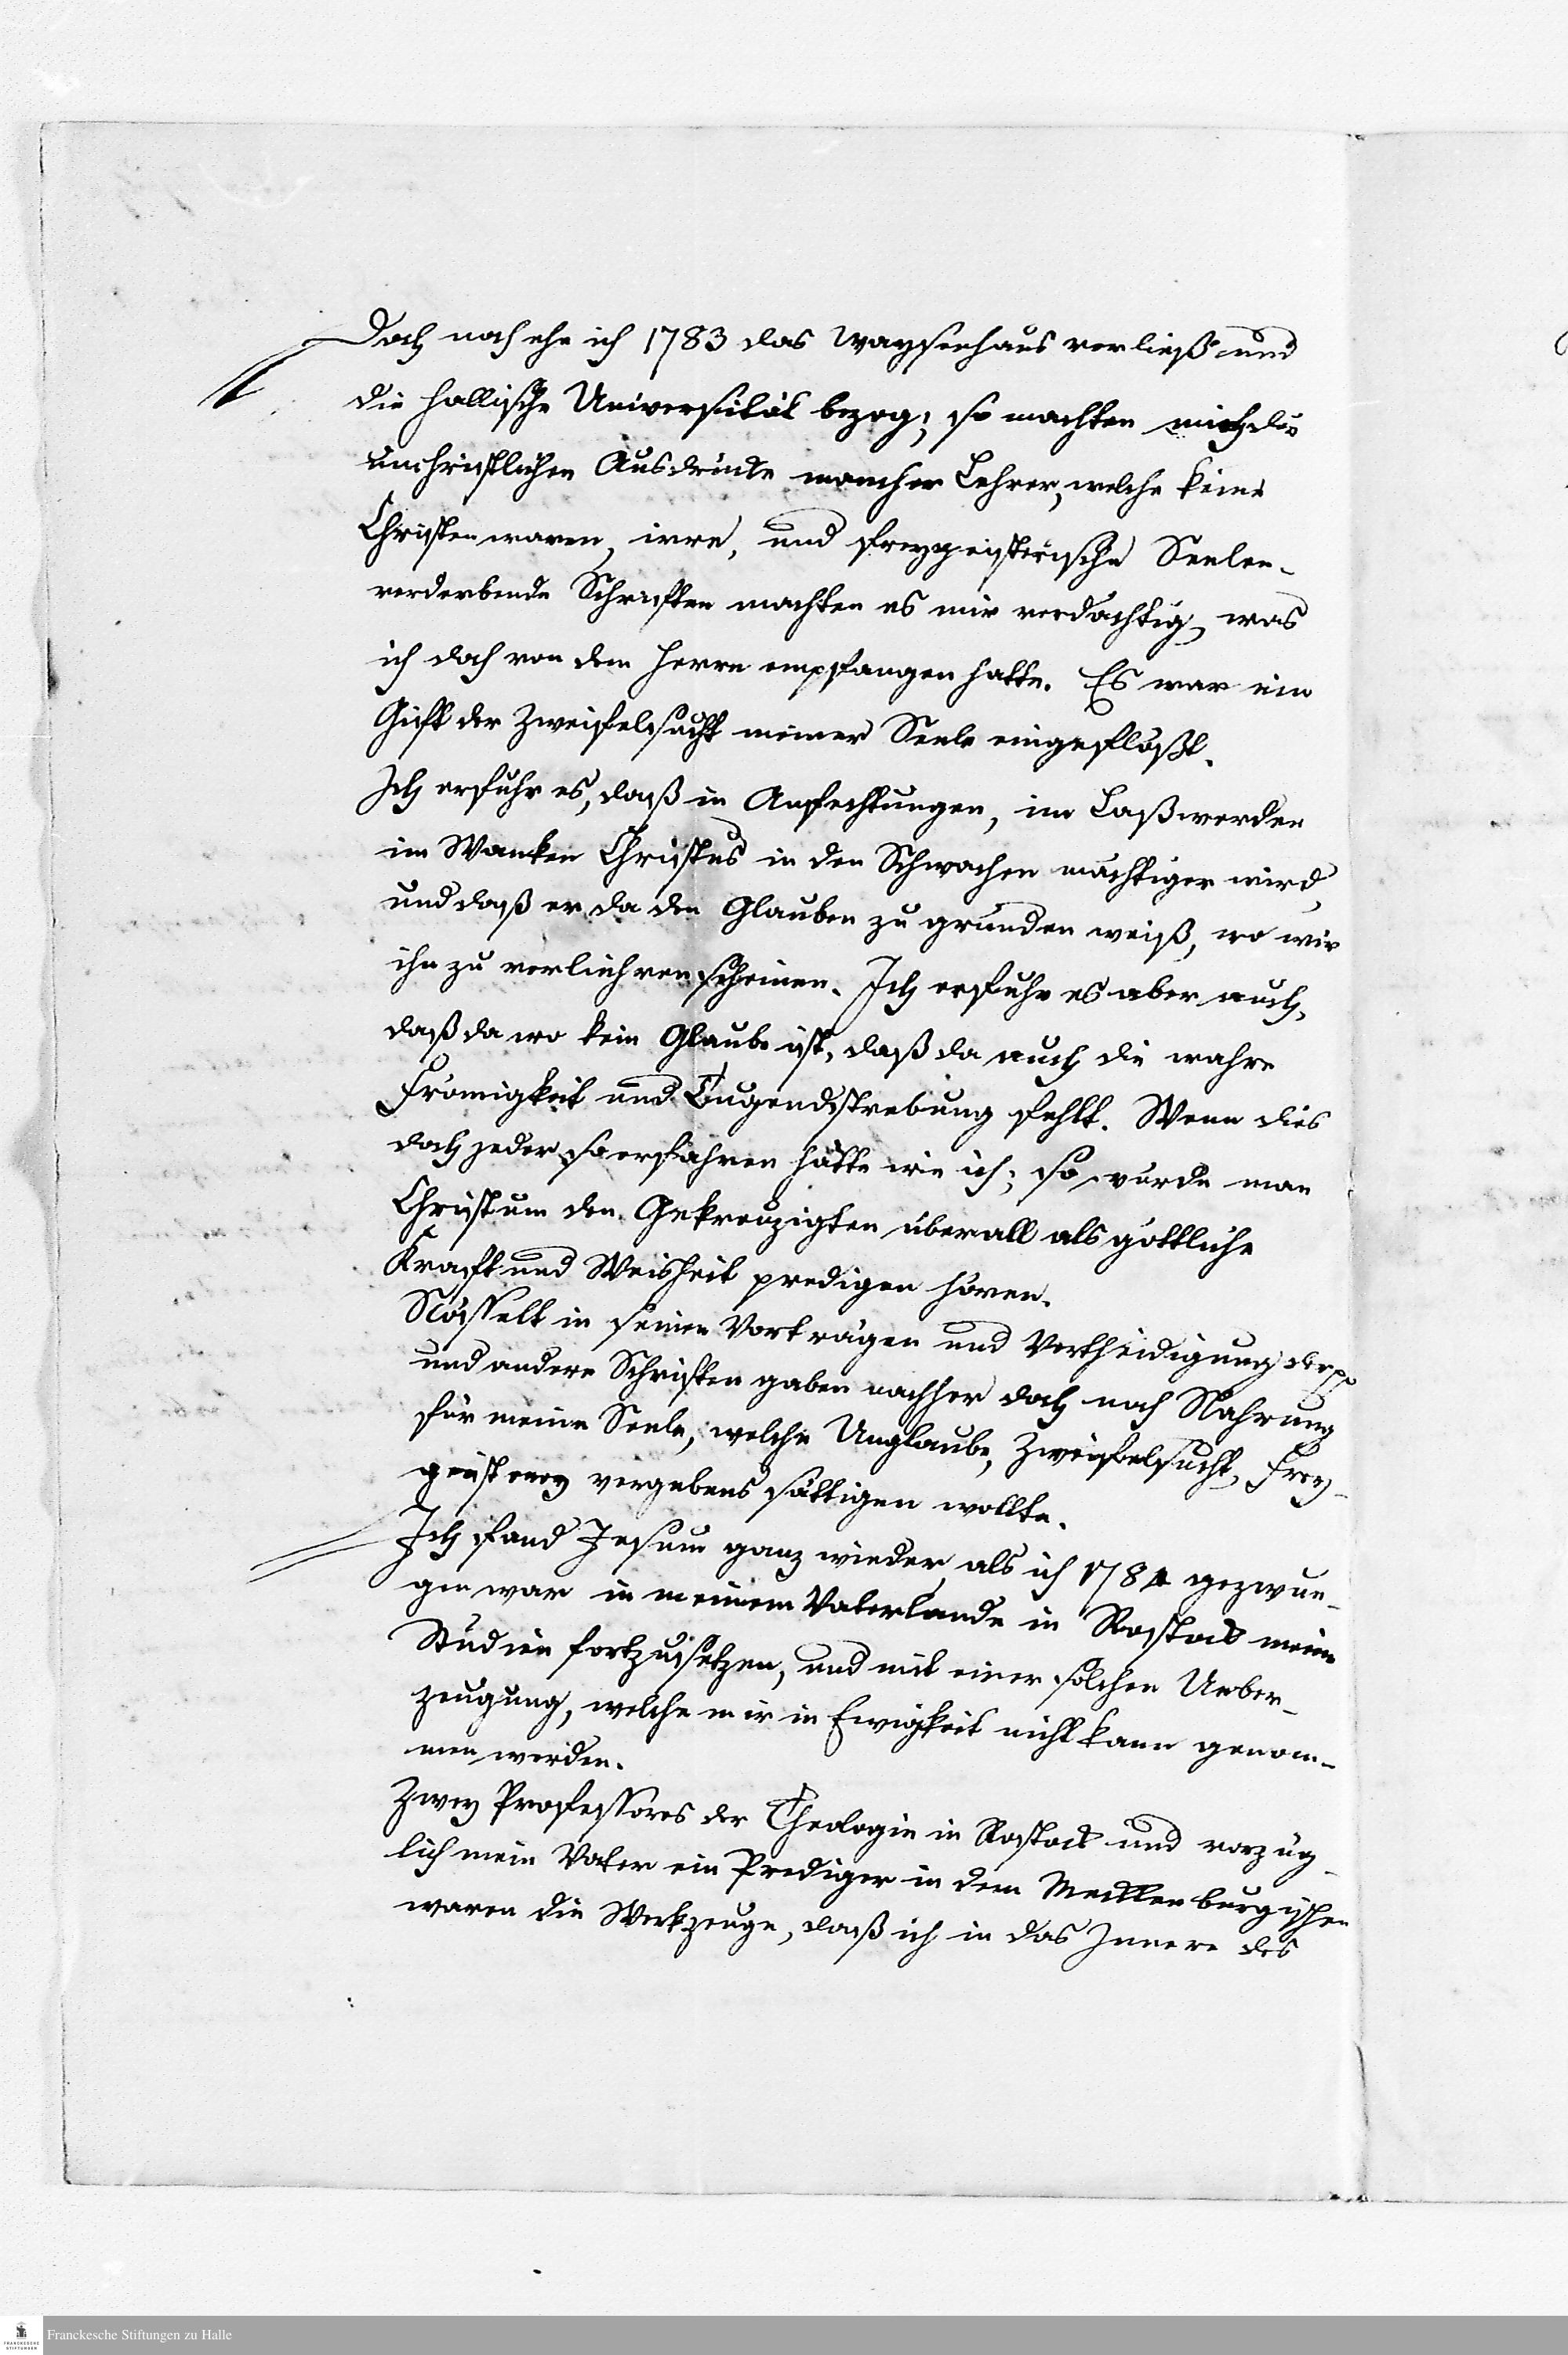 Doch noch ehe ich 1783 das Waysenhaus verließ und
die hallische Universität bezog; so machten mich die
unchristlichen Ausdrücke mancher Lehrer, welche keine
Christen waren, irre, und freygeisterische Seelen-
verderbende Schriften machten es mir verdächtig, was
ich doch von dem Herrn empfangen hatte. Es war ein
Gift der Zweifelsucht meiner Seele eingeflößt.
Ich erfuhr es, daß in Anfechtungen, im Laßwerden
im Wanken Christus in den Schwachen mächtiger wird,
und daß er da den Glauben zu gründen weiß, wo wir
ihn zu verliehren scheinen. Ich erfuhr es aber auch,
daß da wo kein Glaube ist, daß da auch die wahre
Fromigkeit und Tugendstrebung fehlt. Wenn dies
doch jeder so erfahren hätte wie ich; so würde man
Christum den Gekreuzigten überall als göttliche
Krafft und Weisheit predigen hören.
Nösselt in seinen Vorträgen und Vertheidigung der pp
und andere Schriften gaben nachher doch noch Nahrung
für meine Seele, welche Unglaube, Zweifelsucht, Frey-
geisterey vergebens sättigen wollte.
Ich fand Jesum ganz wieder, als ich 1784 gezwun-
gen war in meinem Vaterlande in Rostock meine
Studien fortzusetzen, und mit einer solchen Ueber-
zeugung, welche mir in Ewigkeit nicht kann genom-
men werden.
Zwey Professores der Theologie in Rostock und vorzüg-
lich mein Vater ein Prediger in dem Mecklenburgischen
waren die Werkzeuge, daß ich in das Innere des
Franckesche Stiftungen zu Halle